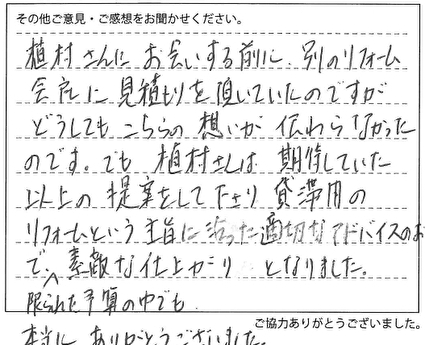 その他ご意見・ご感想をお聞かせください。
植村さんにお会いする前に、別のリフォーム
会社に見積もりを頂いていたのですが
どうしてもこちらの想いが伝わらなかった
のです。でも植村さんは期待していた
以上の提案をして下さり賃貸用の
リフォームという主旨に沿った適切なアドバイスのお
で、素敵な仕上がりとなりました。
限られた予算の中でも
ご協力ありがとうございました。
本当にありがとうございました。